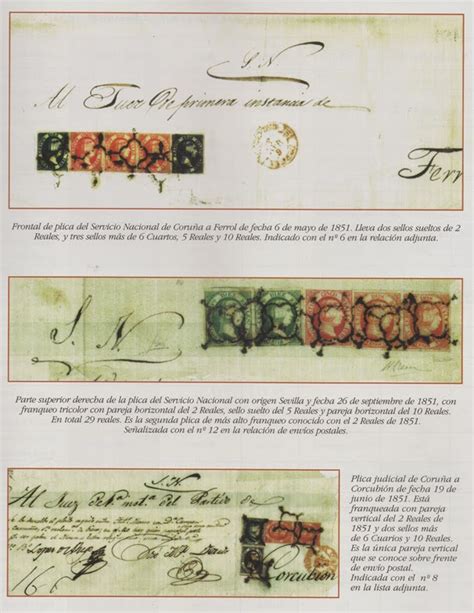 S. N.
Al Juez De primera instancia de
Ferr
Frontal de plica del Servicio Nacional de Coruña a Ferrol de fecha 6 de mayo de 1851. Lleva dos sellos sueltos de 2
Reales, y tres sellos más de 6 Cuartos, 5 Reales y 10 Reales. Indicado con el nº 6 en la relación adjunta.
S. N.
Parte superior derecha de la plica del Servicio Nacional con origen Sevilla y fecha 26 de septiembre de 1851, con
franqueo tricolor con pareja horizontal del 2 Reales, sello suelto del 5 Reales y pareja horizontal del 10 Reales.
En total 29 reales. Es la segunda plica de más alto franqueo conocido con el 2 Reales de 1851.
Señalizada con el nº 12 en la relación de envíos postales.
S. N.
Al Juez de 1ª instª del Partido de
Corcubion
Plica judicial de Coruña a
Corcubión de fecha 19 de
junio de 1851. Está
franqueada con pareja
vertical del 2 Reales de
1851 y dos sellos más
de 6 Cuarios y 10 Reales.
Es la única pareja vertical
que se conoce sobre frente
de envío postal.
Indicada con el nº 8
en la lista adjunta.